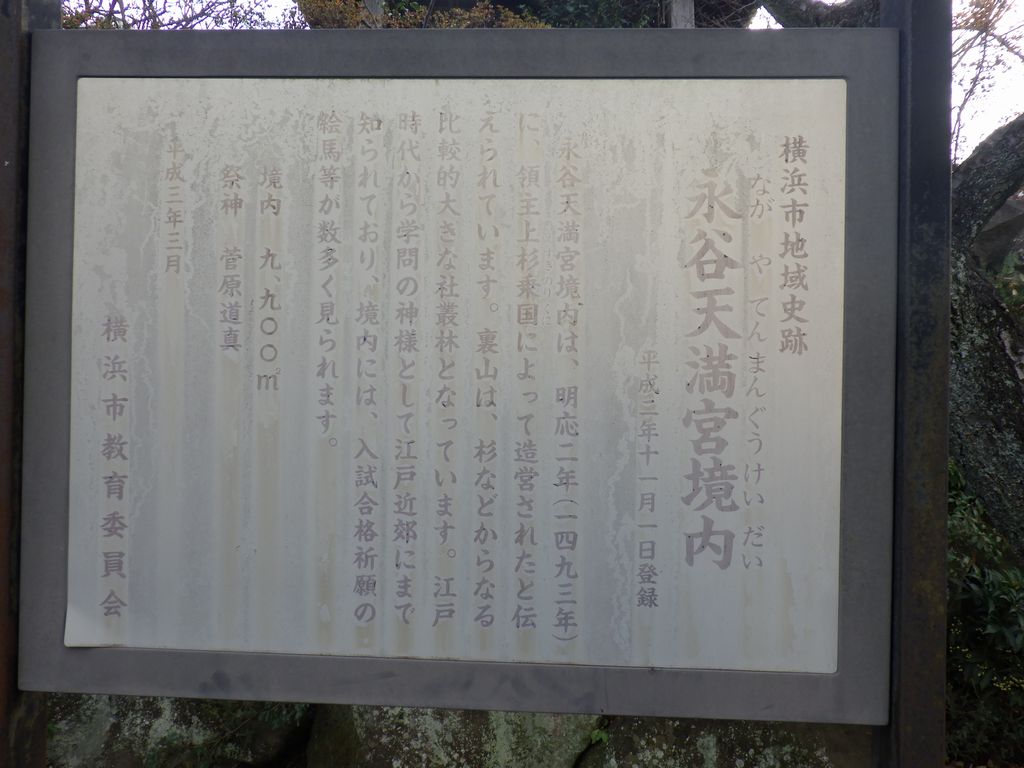 横浜市地域史跡
なが や てんまんぐうけい だい
永谷天満宮境内
平成三年十一月一日登録
永谷天満宮境内は、明応二年(一四九三年)
に、領主上杉乗国によって造営されたと伝
えられています。裏山は、杉などからなる
比較的大きな社叢林となっています。江戸
時代から学問の神様として江戸近郊にまで
知られており、境内には、入試合格祈願の
絵馬等が数多く見られます。
境内 九、九〇〇㎡
祭神 菅原道真
平成三年三月
横浜市教育委員会